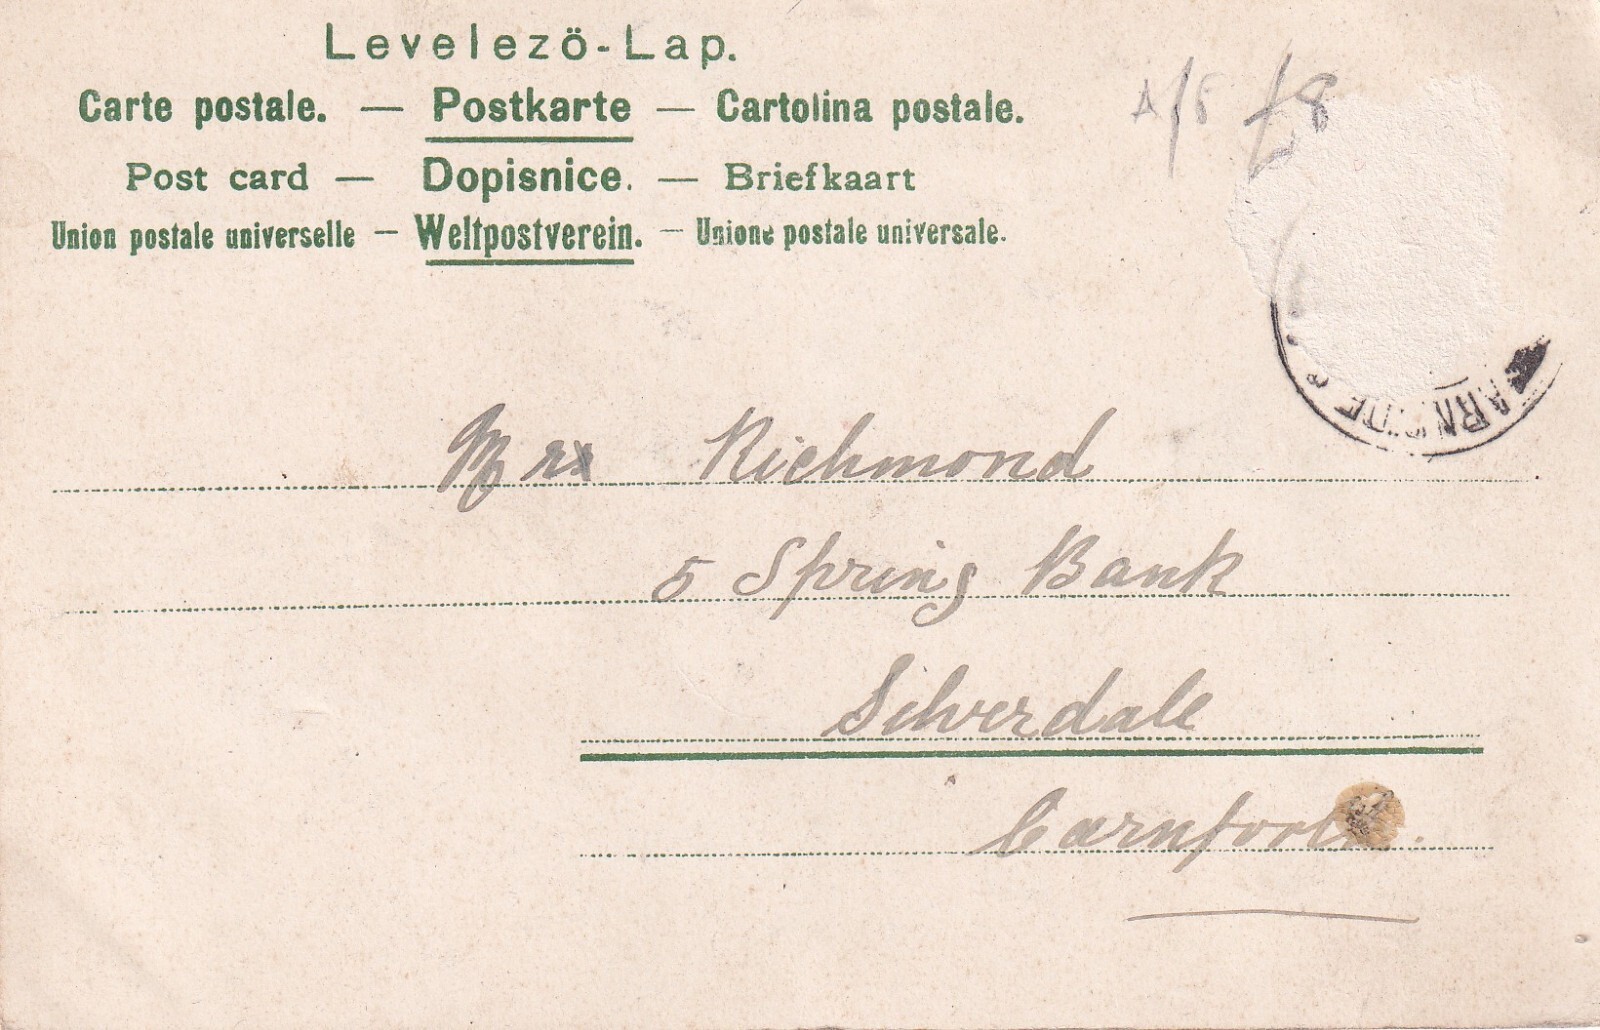 Levelezö-Lap.
Carte postale. — Postkarte — Cartolina postale.
Post card — Dopisnice. — Briefkaart
Union postale universelle — Weltpostverein. — Unione postale universale.
A/5 £8
ARNSIDE
Mrs Richmond
5 Spring Bank
Silverdale
Carnforth.